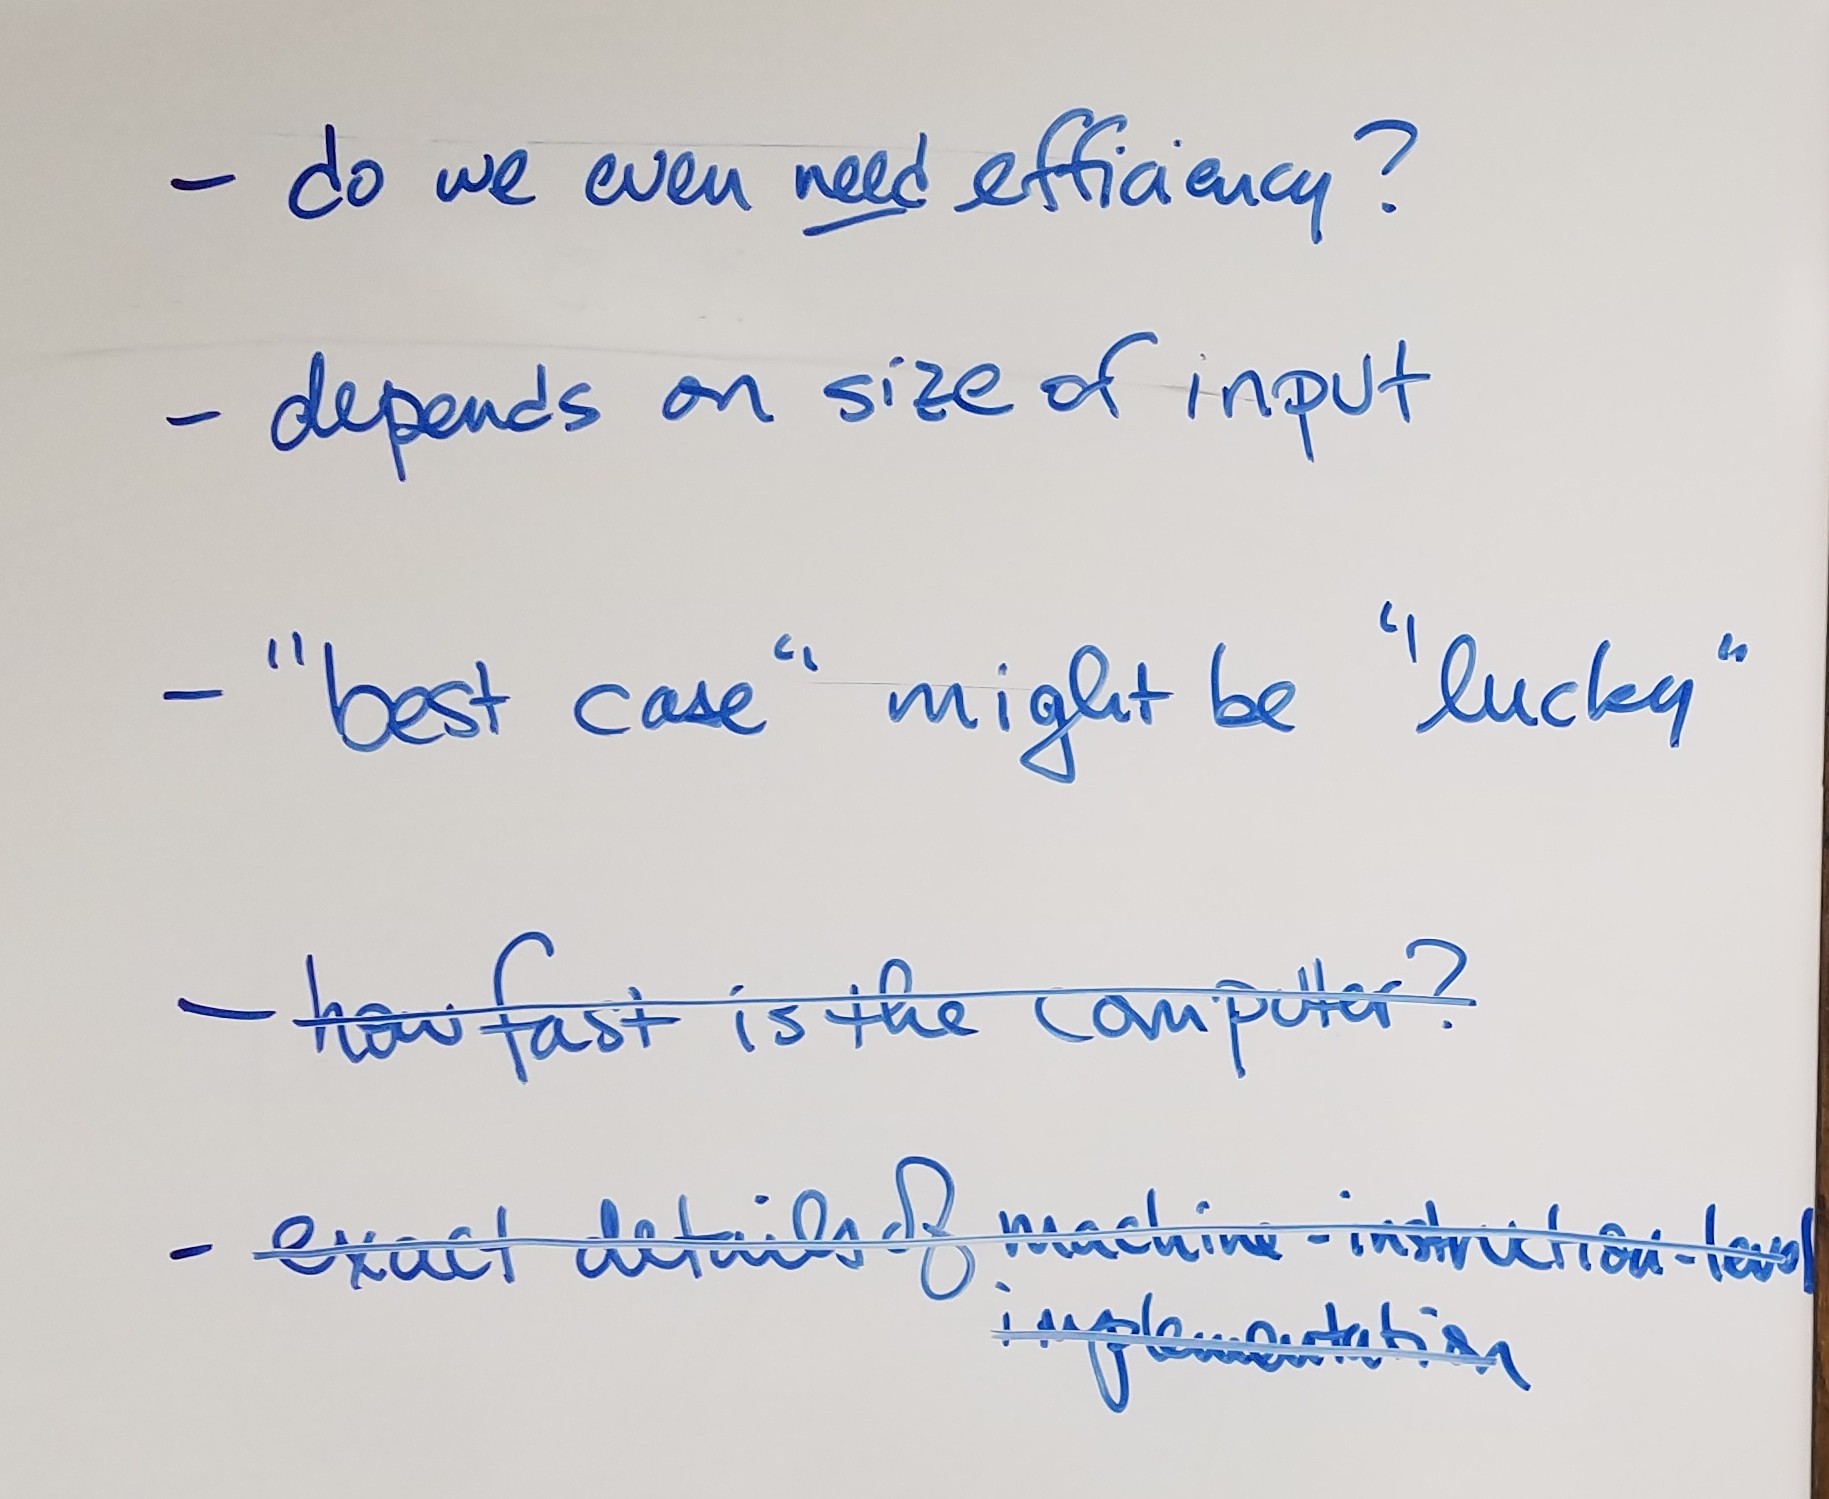 - do we even need efficiency?
- depends on size of input
- "best case" might be "lucky"
- how fast is the computer?
- exact details of machine-instruction-level
implementation